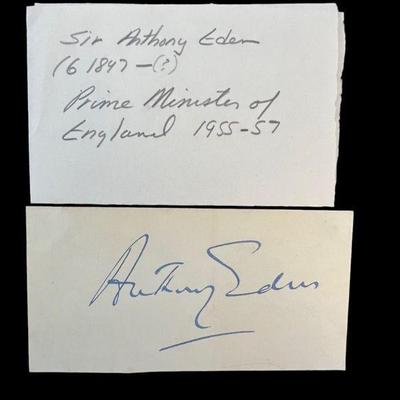 Sir Anthony Eden
(b 1897-(?)
Prime Minister of
England 1955-57
Anthony Eden